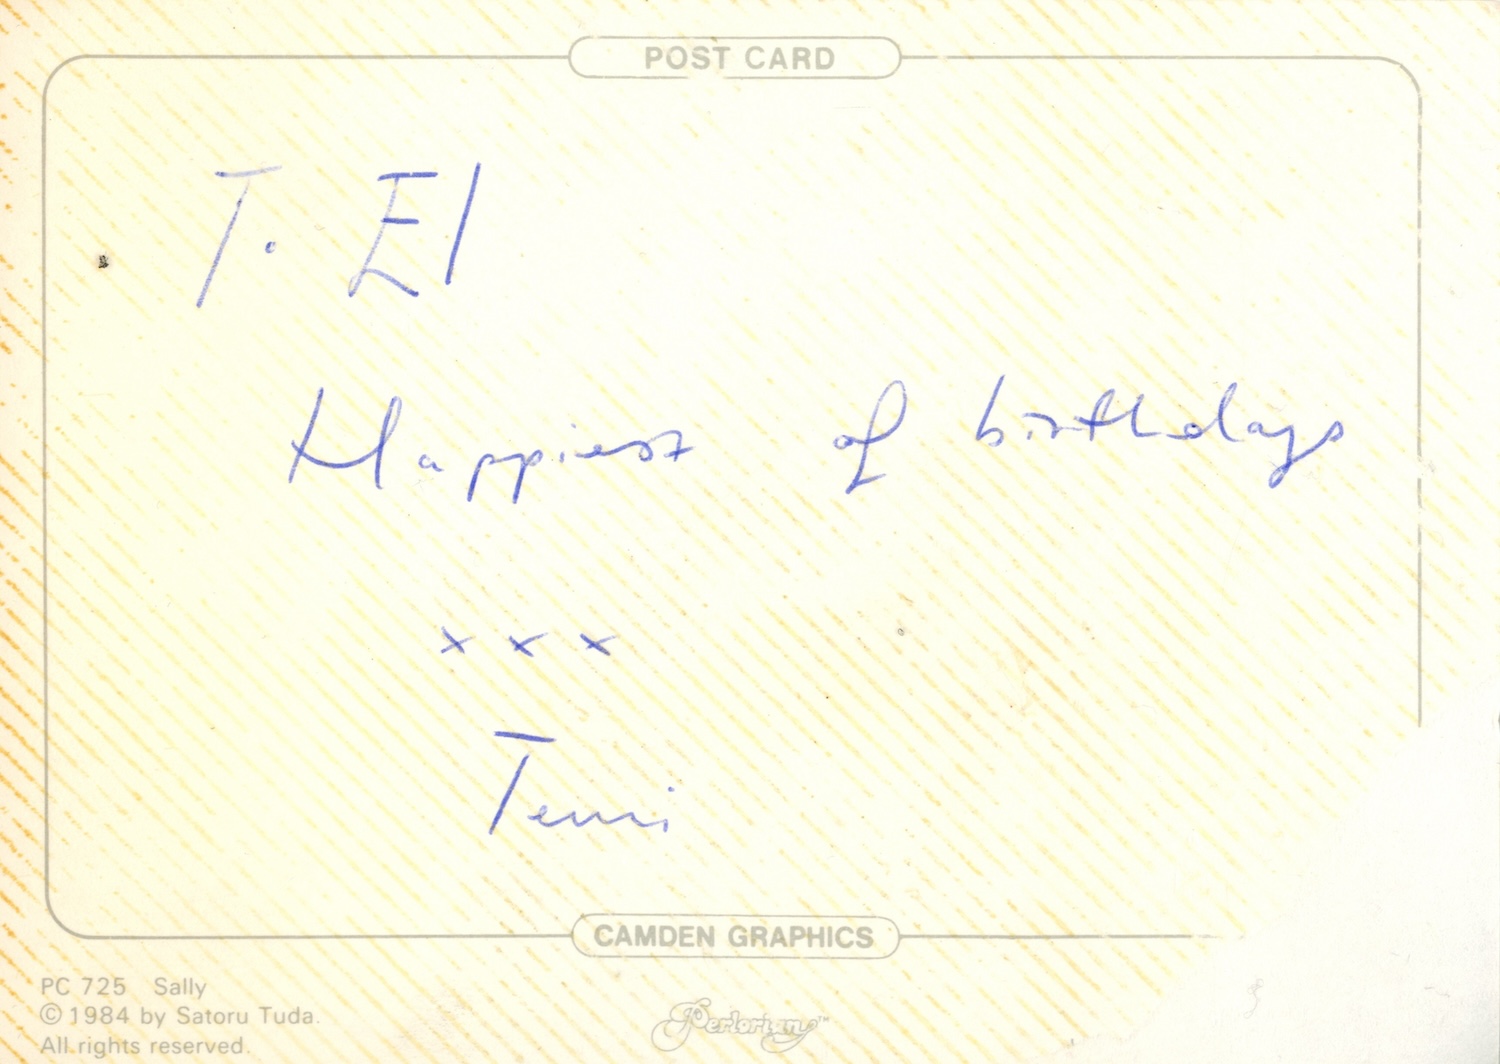 POST CARD
T. El
Happiest of birthdays
x x x
CAMDEN GRAPHICS
PC 725 Sally
© 1984 by Satoru Tuda.
All rights reserved.
Perlorian™